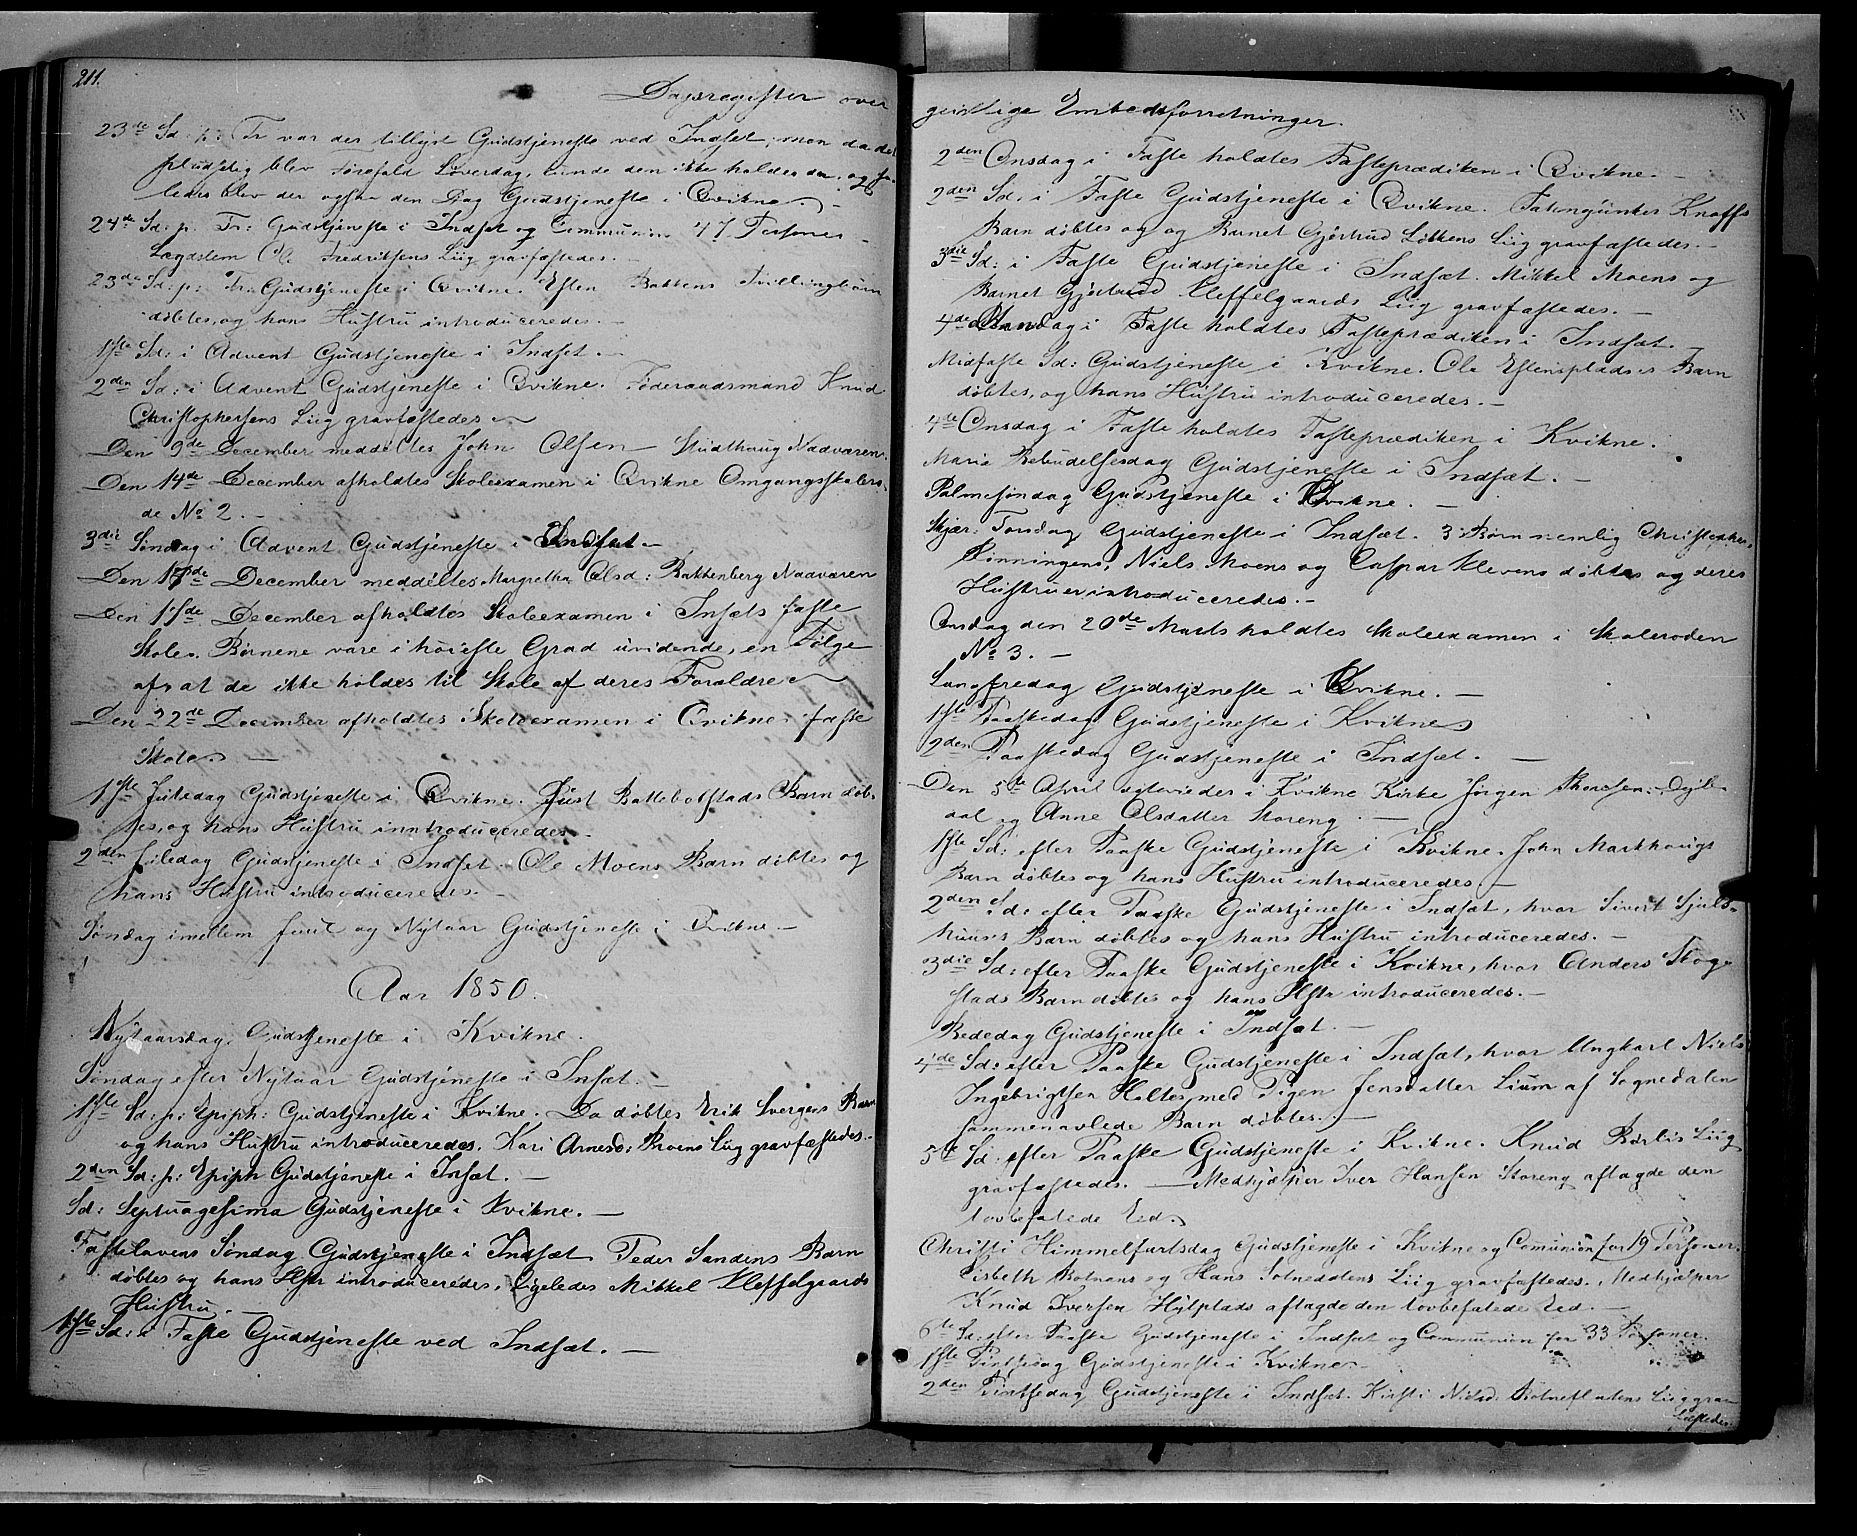 211.
Dagsregister over
23de Sd: p: Tr var der tillyst Gudstjeneste ved Indset, men da det
pludselig blev Lørefald Løverdag, kunde den ikke holdes der, og
ledes blev der ogsaa den Dag Gudstjeneste i Qvikne. –
24de Sd: p. Tr: Gudstjeneste i Indset og Communion 47 Personer –
Lægdslem Ole Fredriksens Liig gravfæstedes. –
23de Sd: p: Tr: Gudstjeneste i Qvikne. Esten Bakkens Tvillingbørn
døbtes, og hans Hustru introduceredes. –
1ste Sd: i Advent Gudstjeneste i Indset. –
2den Sd: i Advent Gudstjeneste i Qvikne. Føderaadsmand Knud
Christophersens Liig gravfæstedes. –
Den 9de December meddeltes John Olsen Studthaug Nadveren.
Den 14de December afholdtes Skoleexamen i Qvikne Omgangsskolero-
de No 2. –
3die Søndag i Advent Gudstjeneste i Indset –
Den 17de December meddeltes Margretha Olsd: Bakkenberg Nadveren
Den 1sde December afholdtes Skoleexamen i Insets faste
Skole. Børnene vare i høieste Grad uvidende, en Følge
af, at de ikke holdes til Skole af deres Forældre. –
Den 22de December afholdtes Skoleexamen i Qvikne faste
Skole. –
1ste Juledag Gudstjeneste i Qvikne. Just Battebolstads Barn døb-
tes, og hans Hustru inntroduceredes. –
2den Juledag Gudstjeneste i Indset. Ole Moens Barn døbtes og
hans Hustru introduceredes. –
Søndag imellem Juul og Nytaar Gudstjeneste i Qvikne –
Aar 1850.
Nytaarsdag Gudstjeneste i Kvikne.
Søndag efter Nytaar Gudstjeneste i Insæt. –
1ste Sd: p: Epiph: Gudstjeneste i Kvikne. Da døbtes Erik Svergens Barn
og hans Hustru introduceredes. Kari Arnesd: Moens Liig gravfæstedes. –
2den Sd: p: Epiph Gudstjeneste i Insæt. –
Sd: Septuagesima Gudstjeneste i Kvikne. –
Fastelavens Søndag Gudstjeneste i Indsæt Peder Sandens Barn
døbtes og hans Hstr introduceredes, Ligeledes Mikkel Kleffelgaards
Hustru. –
1ste Sd: i Faste Gudstjeneste ved Indsæt. –
geistlige Embedsforretninger.
2den Onsdag i Faste holdtes Fasteprædiken i Qvikne. –
2den Sd. i Faste Gudstjeneste i Qvikne. Knoffs
Barn døbtes og og Barnet Gjertrud Løkkens Liig gravfæstedes. –
3die Sd: i Faste Gudstjeneste i Indsæt. Mikkel Moens og
Barnet Gjertrud Kleffelgaards Liig gravfæstedes. –
4de Onsdag i Faste holdtes Fasteprædiken i Indsæt. –
Midfaste Sd: Gudstjeneste i Kvikne. Ole Estensplads's Barn
døbtes, og hans Hustru introduceredes. –
4de Onsdag i Faste holdtes Fasteprædiken i Kvikne.
Maria Bebudelsesdag Gudstjeneste i Indsæt. –
Palmesøndag Gudstjeneste i Kvikne. –
Skjær: Torsdag Gudstjeneste i Indsæt. 3 Børn nemlig Christopher
Rønningens, Niels Moens og Caspar Klevens døbtes og deres
Hustruer introduceredes. –
Onsdag den 20de Marts holdtes Skoleexamen i Skoleroden
No 3. –
Langfredag Gudstjeneste i Kvikne. –
1ste Paaskedag Gudstjeneste i Kvikne.
2den Paaskedag Gudstjeneste i Indsæt. –
Den 5te April egteviedes i Kvikne Kirke Jørgen Thoresen: Dejle-
aal og Anne Olsdatter Storeng. –
1ste Sd: efter Paaske Gudstjeneste i Kvikne. John Markhaugs
Barn døbtes og hans Hustru introduceredes. –
2den Sd: efter Paaske Gudstjeneste i Indsæt, hvor Sivert Sjuls-
huus's Barn døbtes og hans Hustru introduceredes. –
3die Sd: efter Paaske Gudstjeneste i Kvikne, hvor Anders Skog-
stads Barn døbtes og hans Hstr introduceredes. –
Bededag Gudstjeneste i Indsæt. –
4de Sd: efter Paaske Gudstjeneste i Indsæt, hvor Ungkarl Niels
Ingebrigtsen Holtes, med Pigen Jensdatter Lium af Sognedalen
sammenavlede Barn døbtes. –
5te Sd: efter Paaske Gudstjeneste i Kvikne. Knud Børlis Liig
gravfæstedes. – Medhjælper Iver Hansen Storeng aflagde den
lovbefalede Eed.
Christi Himmelfartsdag Gudstjeneste i Kvikne og Comunion for 19 Personer.
Lisbeth Botnans og Hans Liig gravfæstedes. Medhjælper
Knud Iversen Hylplads aflagde den lovbefalede Eed. –
6te Sd: efter Paaske Gudstjeneste i Indsæt og Communion for 33 Personer.
1ste Pintsedag Gudstjeneste i Kvikne. –
2den Pintsedag Gudstjeneste i Indsæt. Kirsti Nilsd: Liig grav
fæstedes.